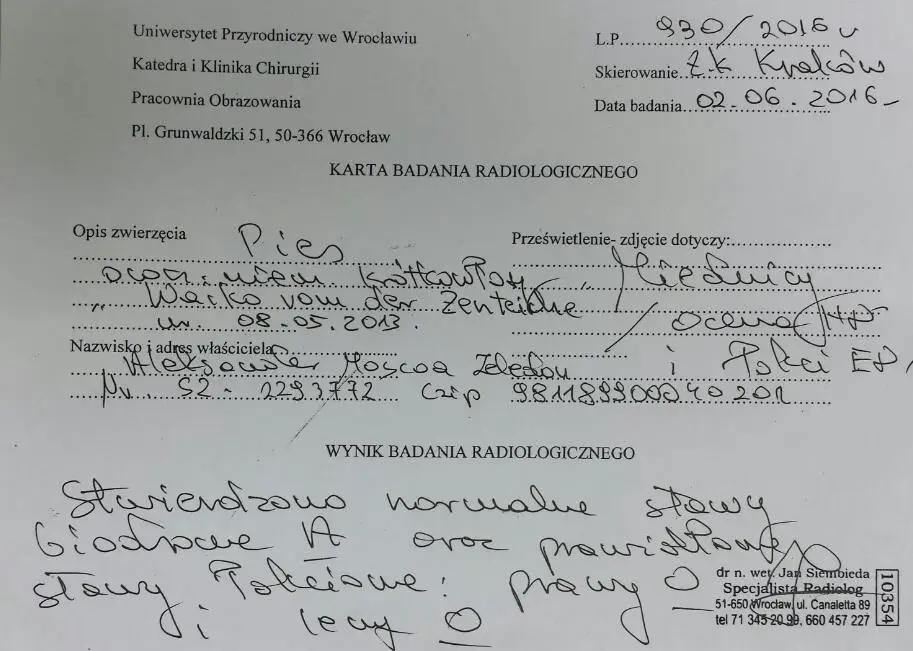 Uniwersytet Przyrodniczy we Wrocławiu
Katedra i Klinika Chirurgii
Pracownia Obrazowania
Pl. Grunwaldzki 51, 50-366 Wrocław
L.P. 930/2016
Skierowanie Z.K Kraków
Data badania 02.06.2016
KARTA BADANIA RADIOLOGICZNEGO
Opis zwierzęcia Pies
Prześwietlenie- zdjęcie dotyczy:
owcz. niem. krótkowłosy Miednicy
„Wacko vom der Zenteiche
ur. 08.05.2013. ocena HD
Nazwisko i adres właściciela i łokci ED
Moscoa Zeledon
Nr. SZ- 2293772 Czip
WYNIK BADANIA RADIOLOGICZNEGO
Stwierdzono normalne stawy
biodrowe A oraz prawidłowe
stawy łokciowe: prawy 0
i lewy 0
dr n. wet. Jan Siembieda
Specjalista Radiolog
51-650 Wrocław, ul. Canaletta 89
tel 71 345 20 99, 660 457 227
10354